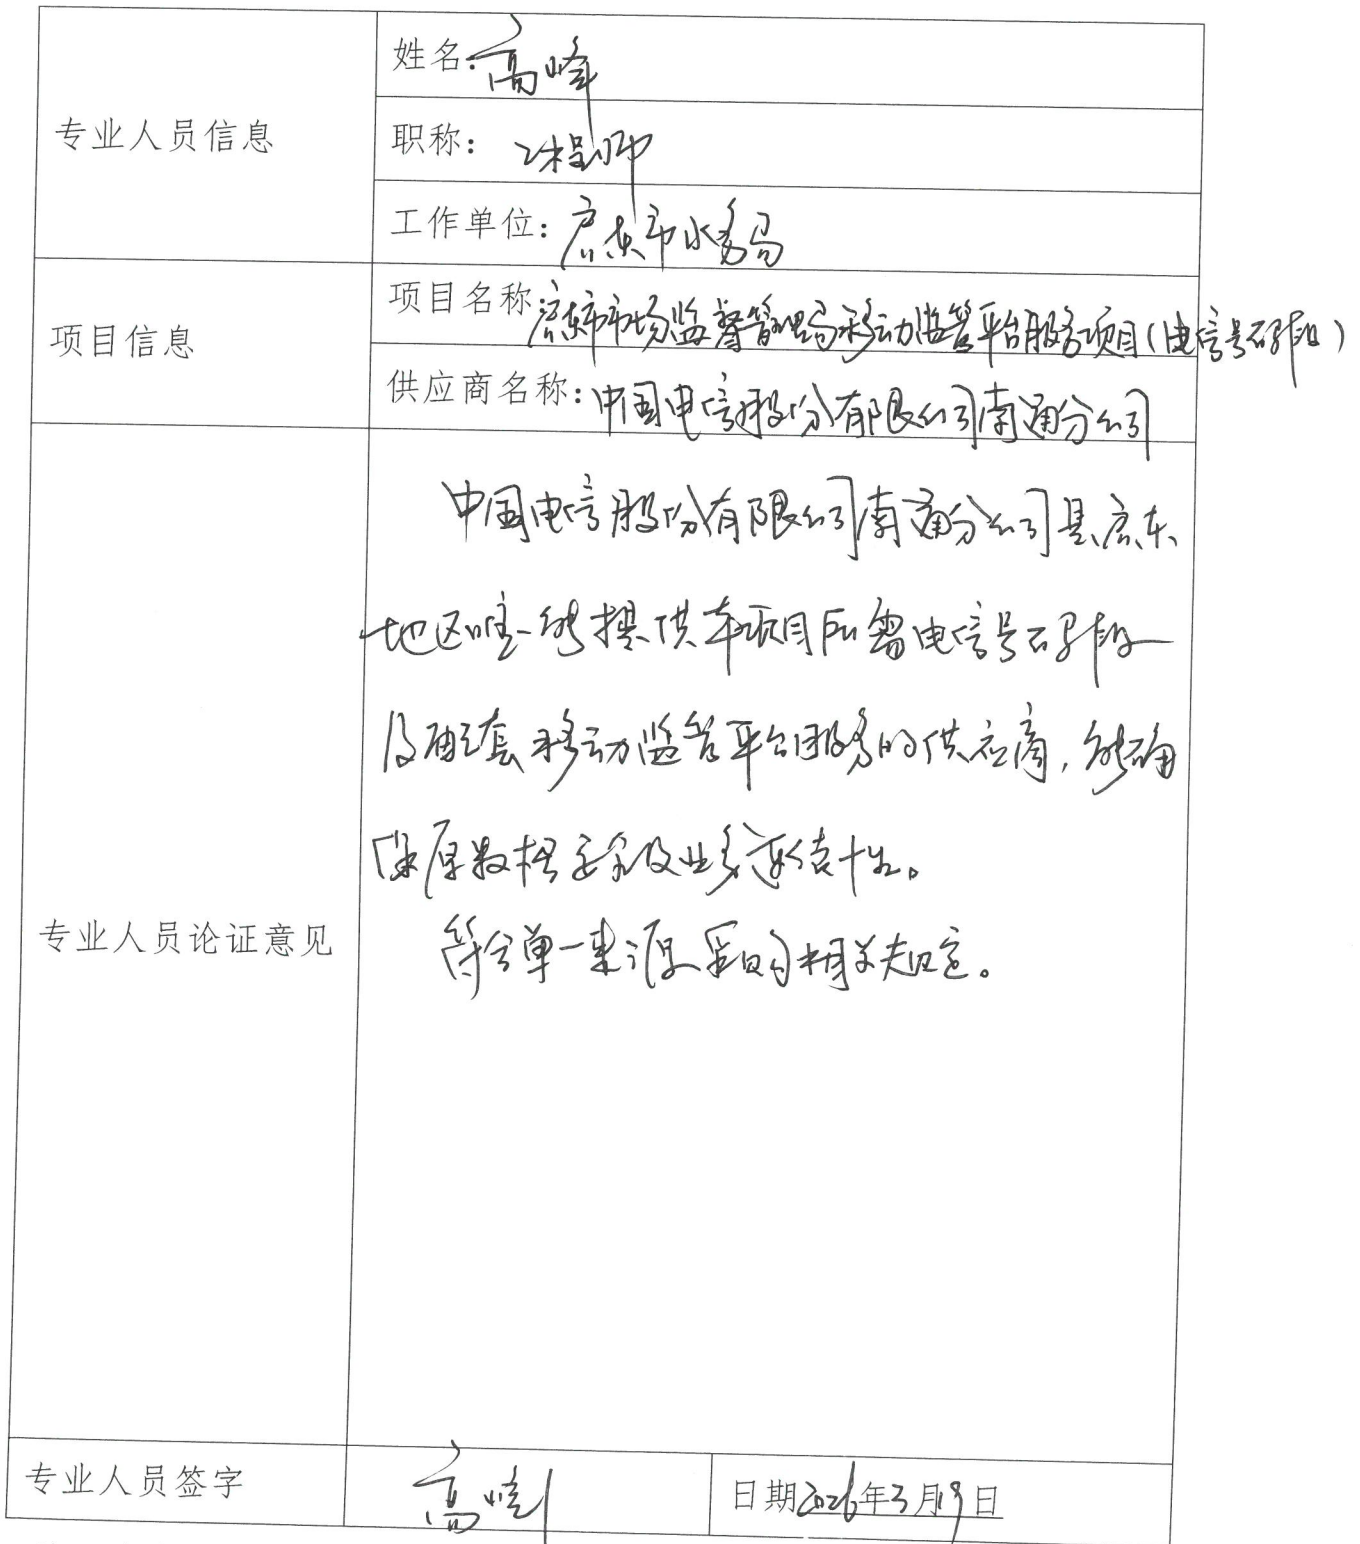 姓名：高峰
专业人员信息
职称：工程师
工作单位：启东市水务局
项目信息
项目名称：启东市市场监督管理局移动监管平台服务项目（电信号码段）
供应商名称：中国电信股份有限公司南通分公司
中国电信股份有限公司南通分公司是启东
地区唯一能提供本项目所需电信号码段
及配套移动监管平台服务的供应商，能确
保原数据安全及业务连续性。
专业人员论证意见
符合单一来源采购相关规定。
专业人员签字
高峰
日期2026年3月19日